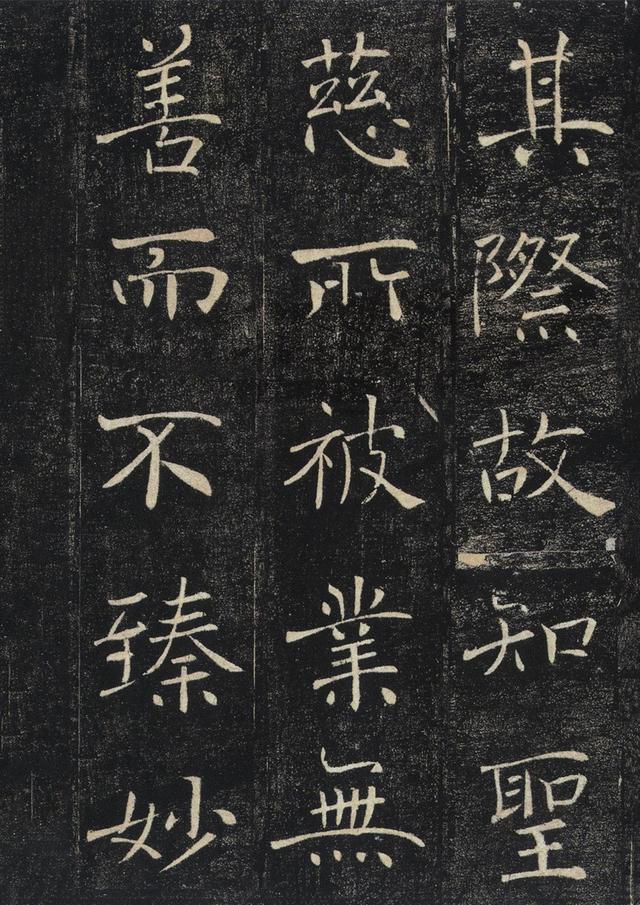 其際故知聖
慈所被業無
善而不臻妙